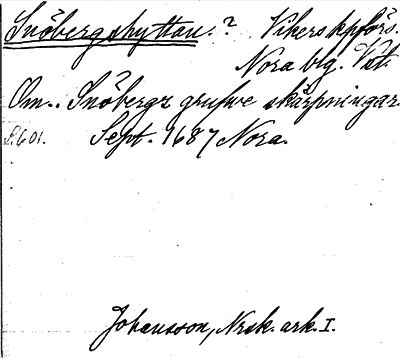 Snöbergshyttan.? Vikers kpförs.
Nora brg. Vst.
Om.. Snöbergz grufwe skärpningar.
S. 601. Sept. 1687 Nora.
Johansson, Nrsk. ark. I.